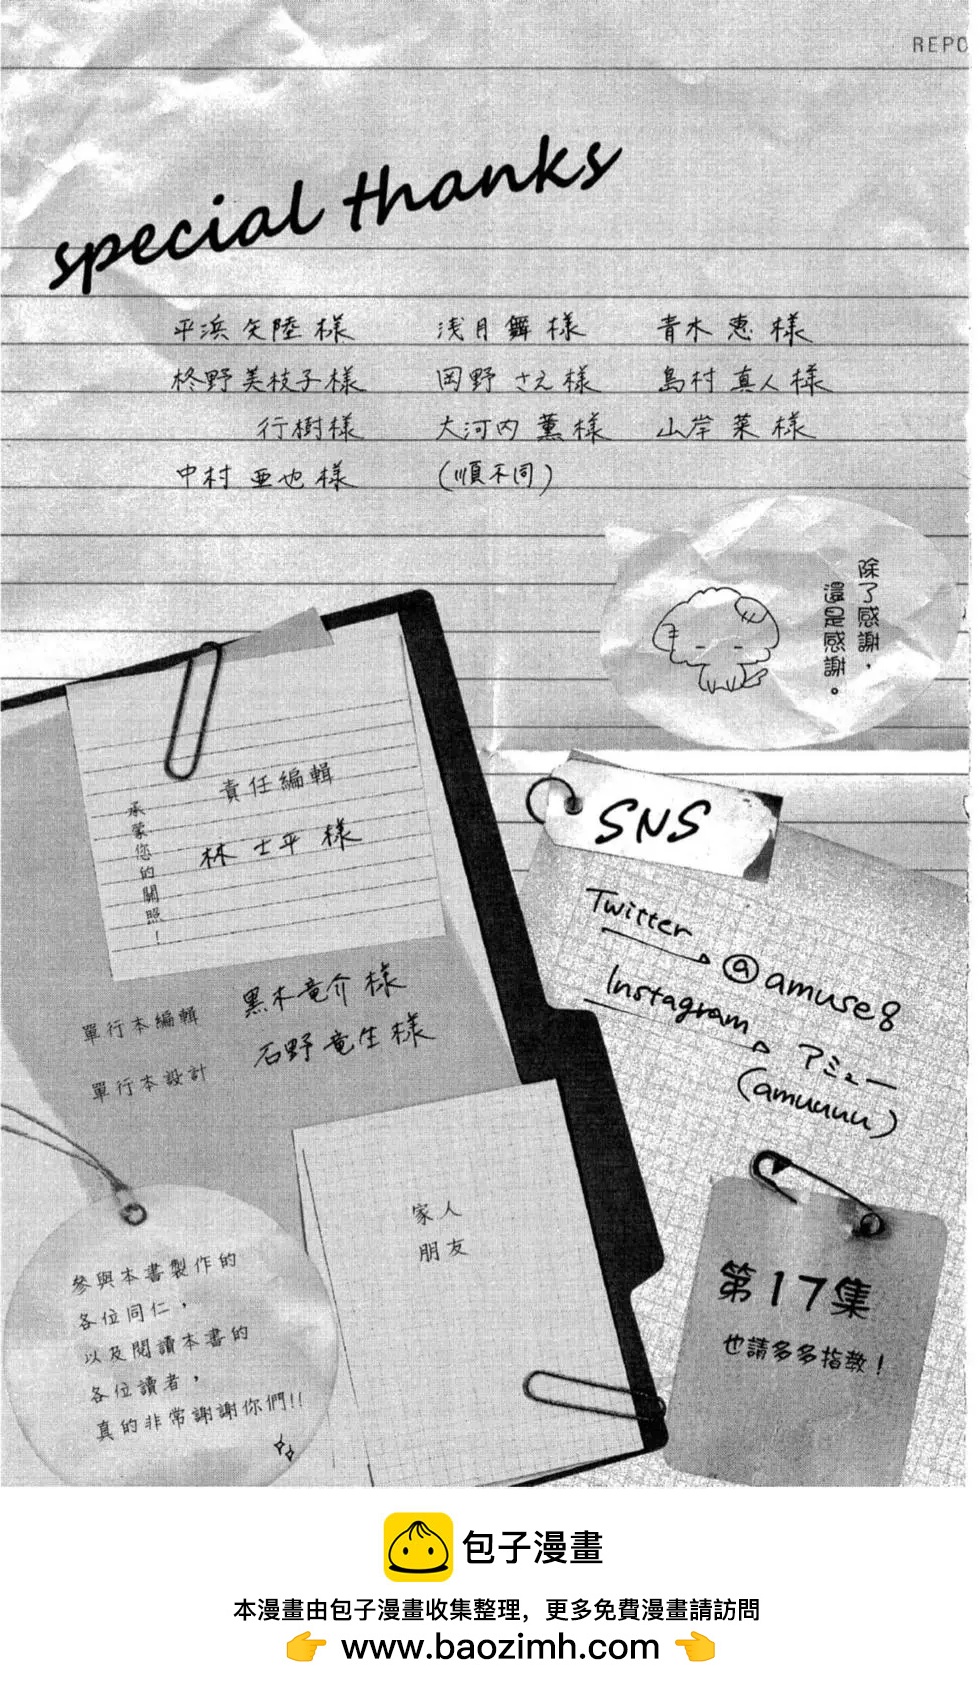 REPO
special thanks
平浜 矢陸 様
浅月 舞 様
青木 恵 様
柊野 美枝子様
岡野 さえ様
島村 真人様
行樹様
大河内 薫様
山岸 菜 様
中村 亜也 様
(順不同)
除了感謝，
還是感謝。
責任編輯
林 士平 様
承蒙您的關照！
SNS
Twitter
@amuse8
Instagram
アミュー
(amuuuu)
單行本編輯
黒木竜介 様
單行本設計
石野竜生様
家人
朋友
參與本書製作的
各位同仁，
以及閱讀本書的
各位讀者，
真的非常謝謝你們!!
第17集
也請多多指教！
包子漫畫
本漫畫由包子漫畫收集整理，更多免費漫畫請訪問
👉 www.baozimh.com 👈